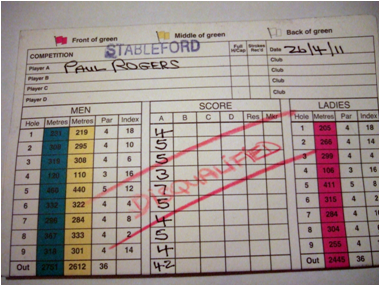 Front of green Middle of green Back of green
COMPETITION STABLEFORD Full H/Cap Strokes Rec'd Date 26/4/11
Player A PAUL ROGERS Club
Player B Club
Player C Club
Player D Club
MEN SCORE LADIES
Hole Metres Metres Par Index A B C D Res Mkr Metres Par Index
1 219 4 18 4 205 4 18
2 295 4 10 5 266 4 14
3 319 308 4 6 5 299 4 4
4 110 3 16 3 106 3 16
5 440 5 12 7 411 5 8
6 332 322 4 5 315 4 2
7 284 4 8 4 284 4 10
8 347 333 4 2 5 304 4
9 318 301 4 14 4 255 4
Out 2612 36 42 Out 2445 36
DISQUALIFIED